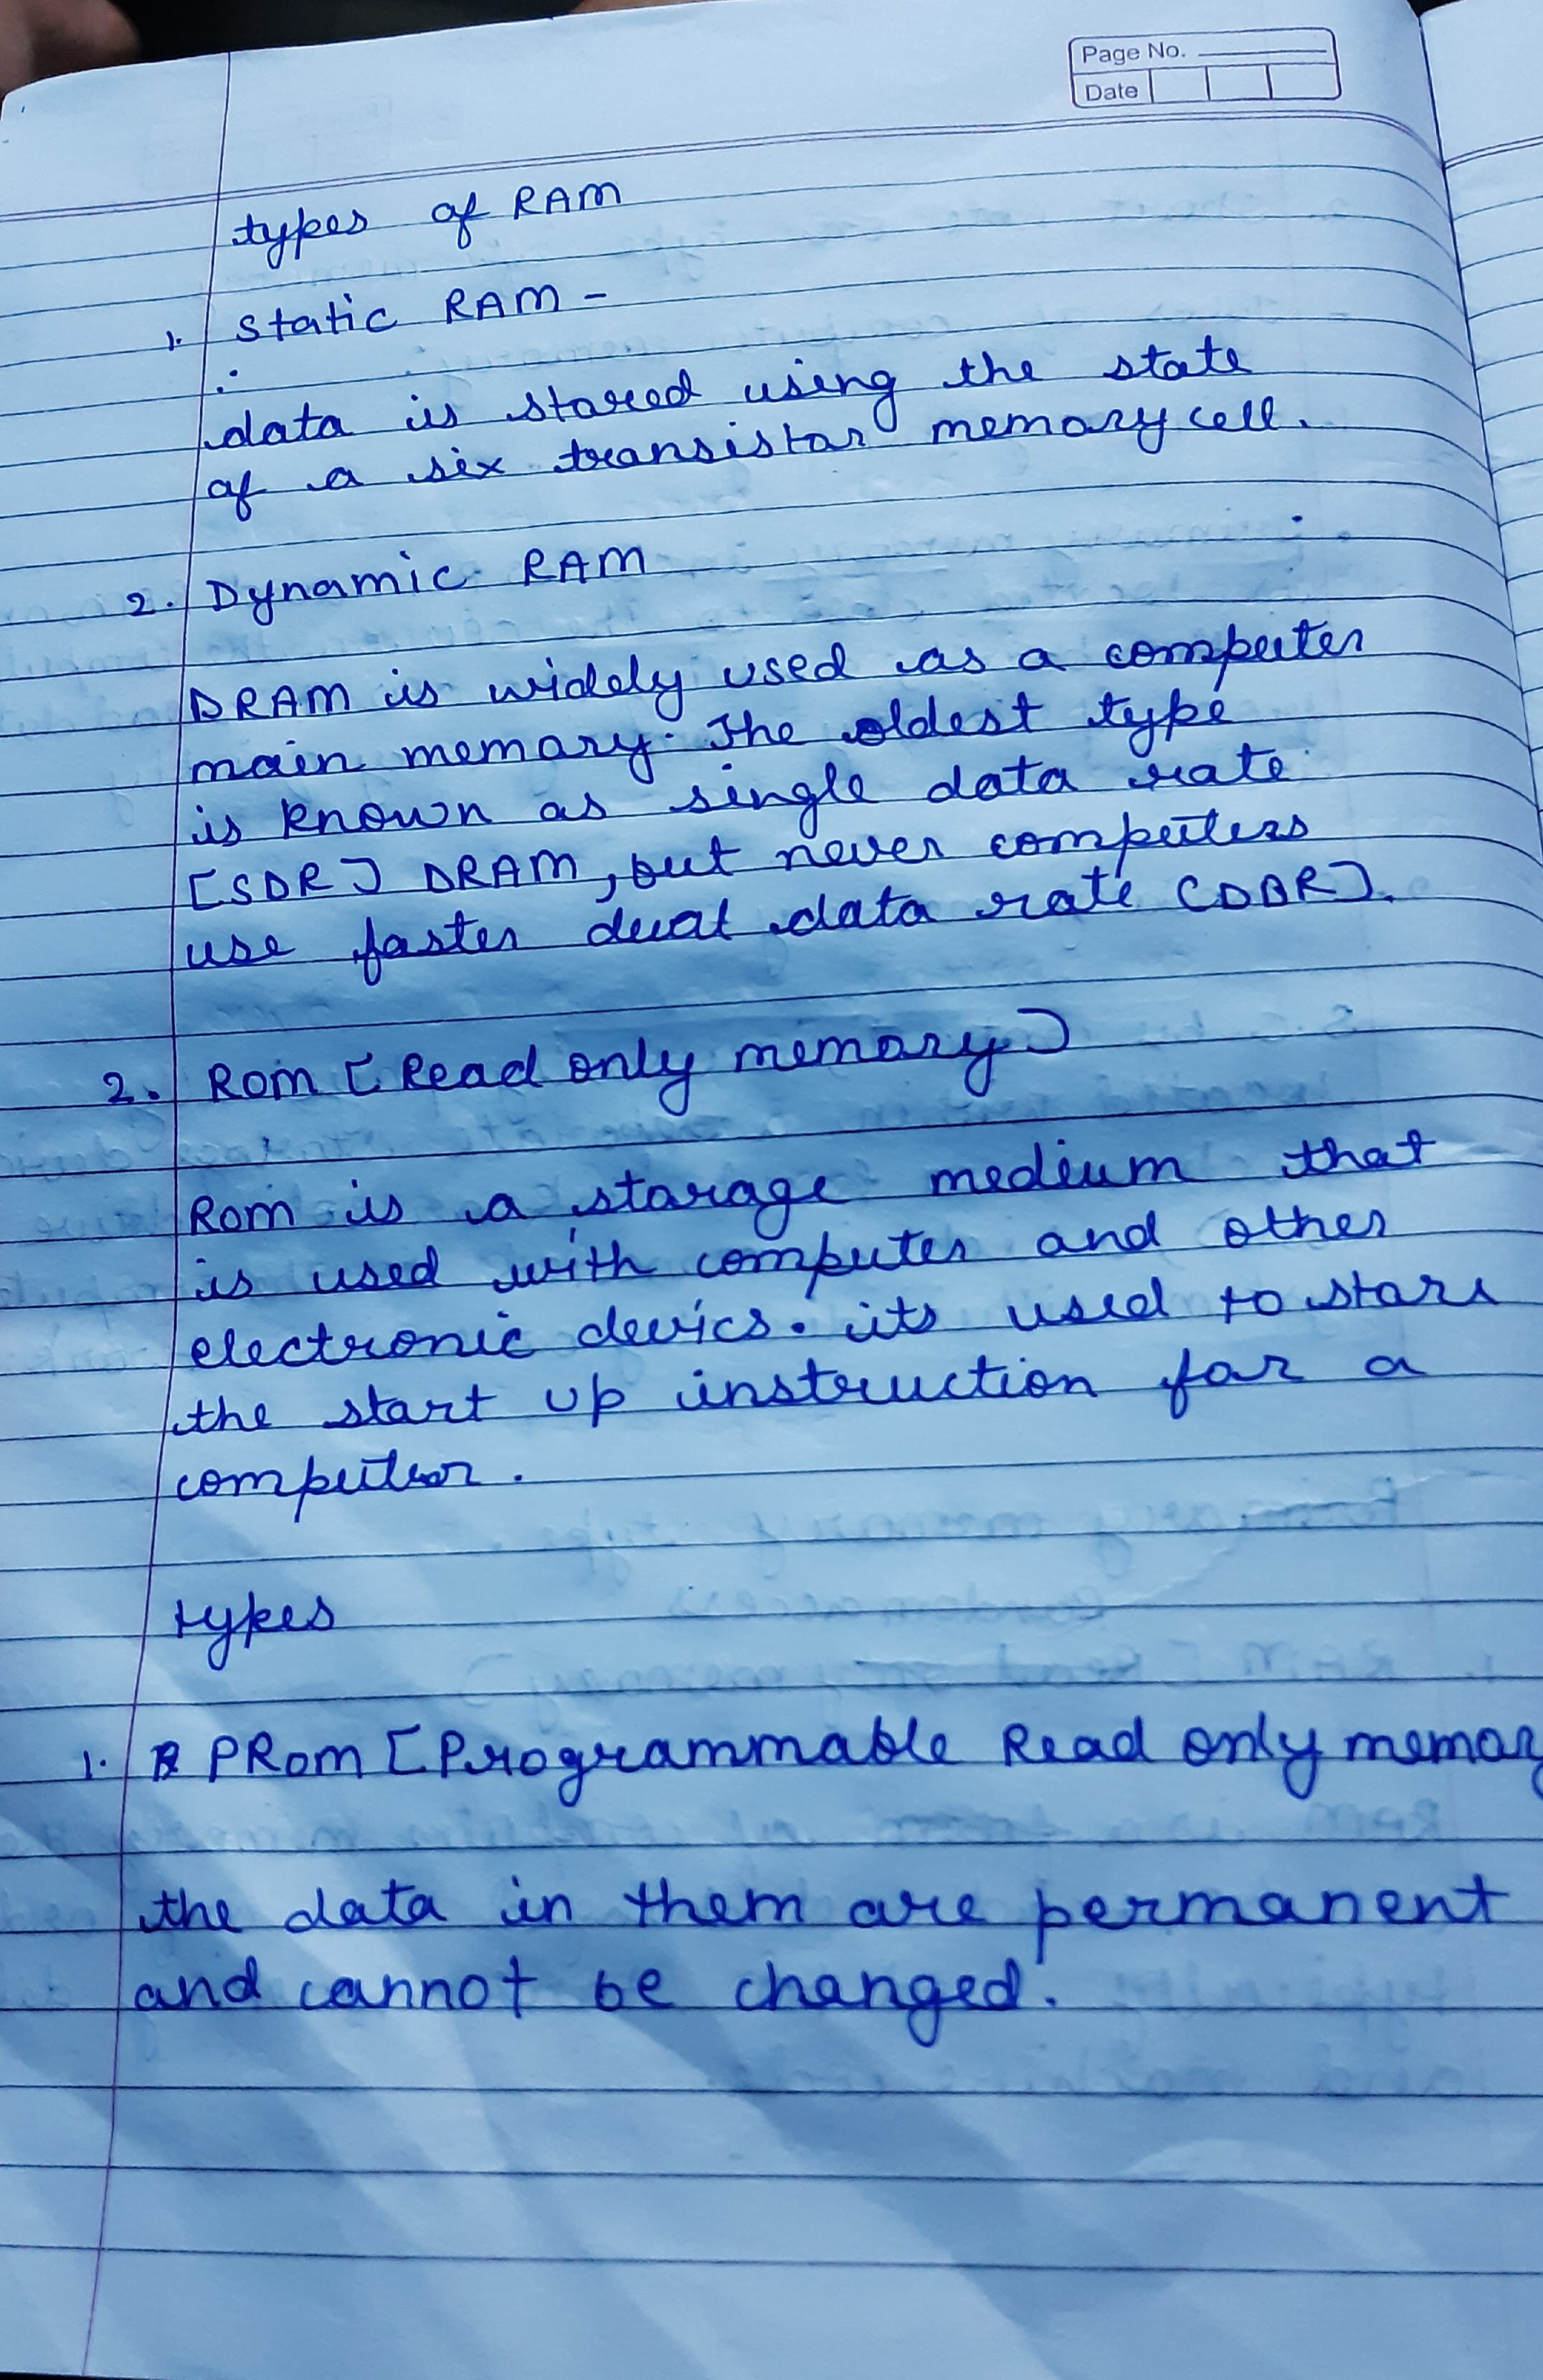 Page No.
Date
types of RAM
1. static RAM -
data is stored using the state
of a six transistor memory cell.
2. Dynamic RAM
DRAM is widely used as a computer
main memory. The oldest type
is known as single data rate
[SDR] DRAM, but never computers
use faster dual data rate [DDR].
2. Rom [Read only memory]
Rom is a storage medium that
is used with computer and other
electronic devics. its used to store
the start up instruction for a
computer.
types
1. PRom [Programmable Read only memory
the data in them are permanent
and cannot be changed.